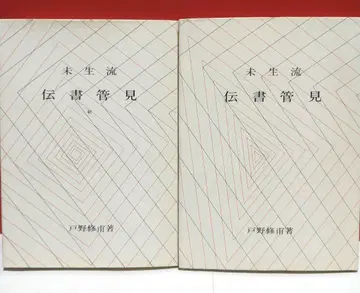 未生流
伝書管見
戸野修甫著
未生流
伝書管見
戸野修甫著